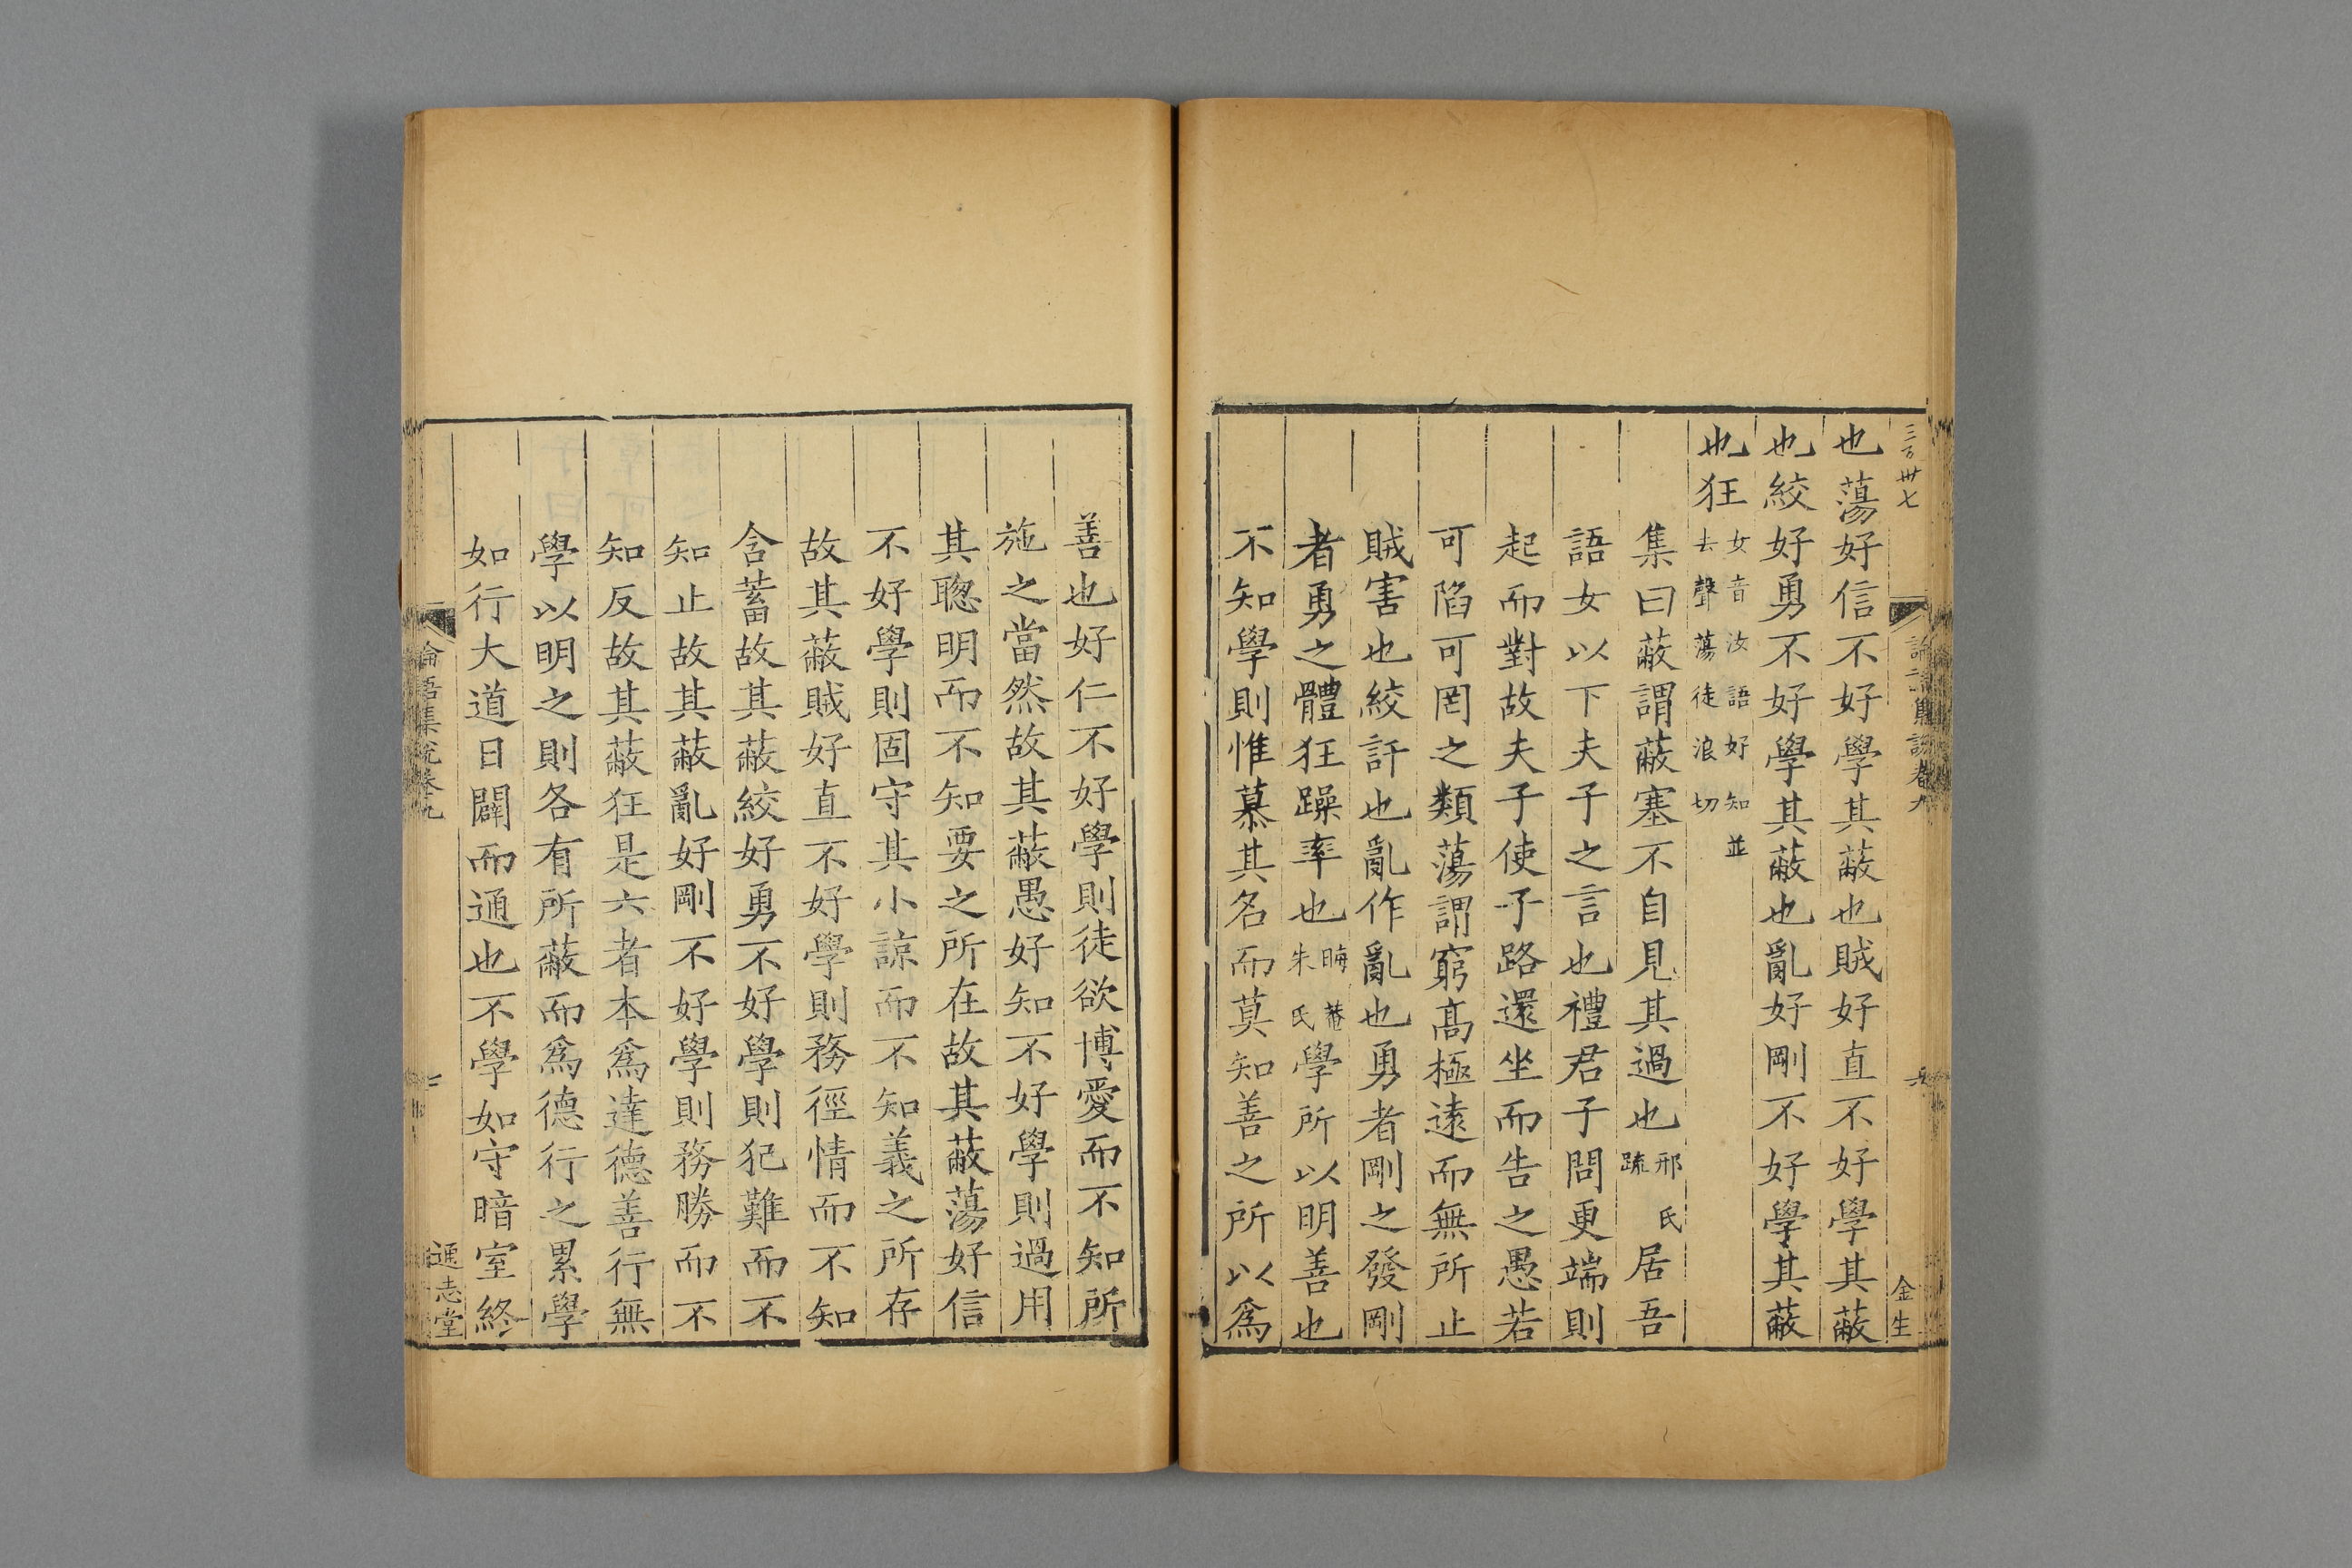 三百卅七
金生
也蕩好信不好學其蔽也賊好直不好學其蔽
也絞好勇不好學其蔽也亂好剛不好學其蔽
也狂女音汝語好知並去聲蕩徒浪切
集曰蔽謂蔽塞不自見其過也邢氏疏居吾
語女以下夫子之言也禮君子問更端則
起而對故夫子使子路還坐而告之愚若
可陷可罔之類蕩謂窮高極遠而無所止
賊害也絞訐也亂作亂也勇者剛之發剛
者勇之體狂躁率也晦菴朱氏學所以明善也
不知學則惟慕其名而莫知善之所以爲
善也好仁不好學則徒欲博愛而不知所
施之當然故其蔽愚好知不好學則過用
其聰明而不知要之所在故其蔽蕩好信
不好學則固守其小諒而不知義之所存
故其蔽賊好直不好學則務徑情而不知
含蓄故其蔽絞好勇不好學則犯難而不
知止故其蔽亂好剛不好學則務勝而不
知反故其蔽狂是六者本爲達德善行無
學以明之則各有所蔽而爲德行之累學
如行大道日闢而通也不學如守暗室終
論語集說卷九
通志堂